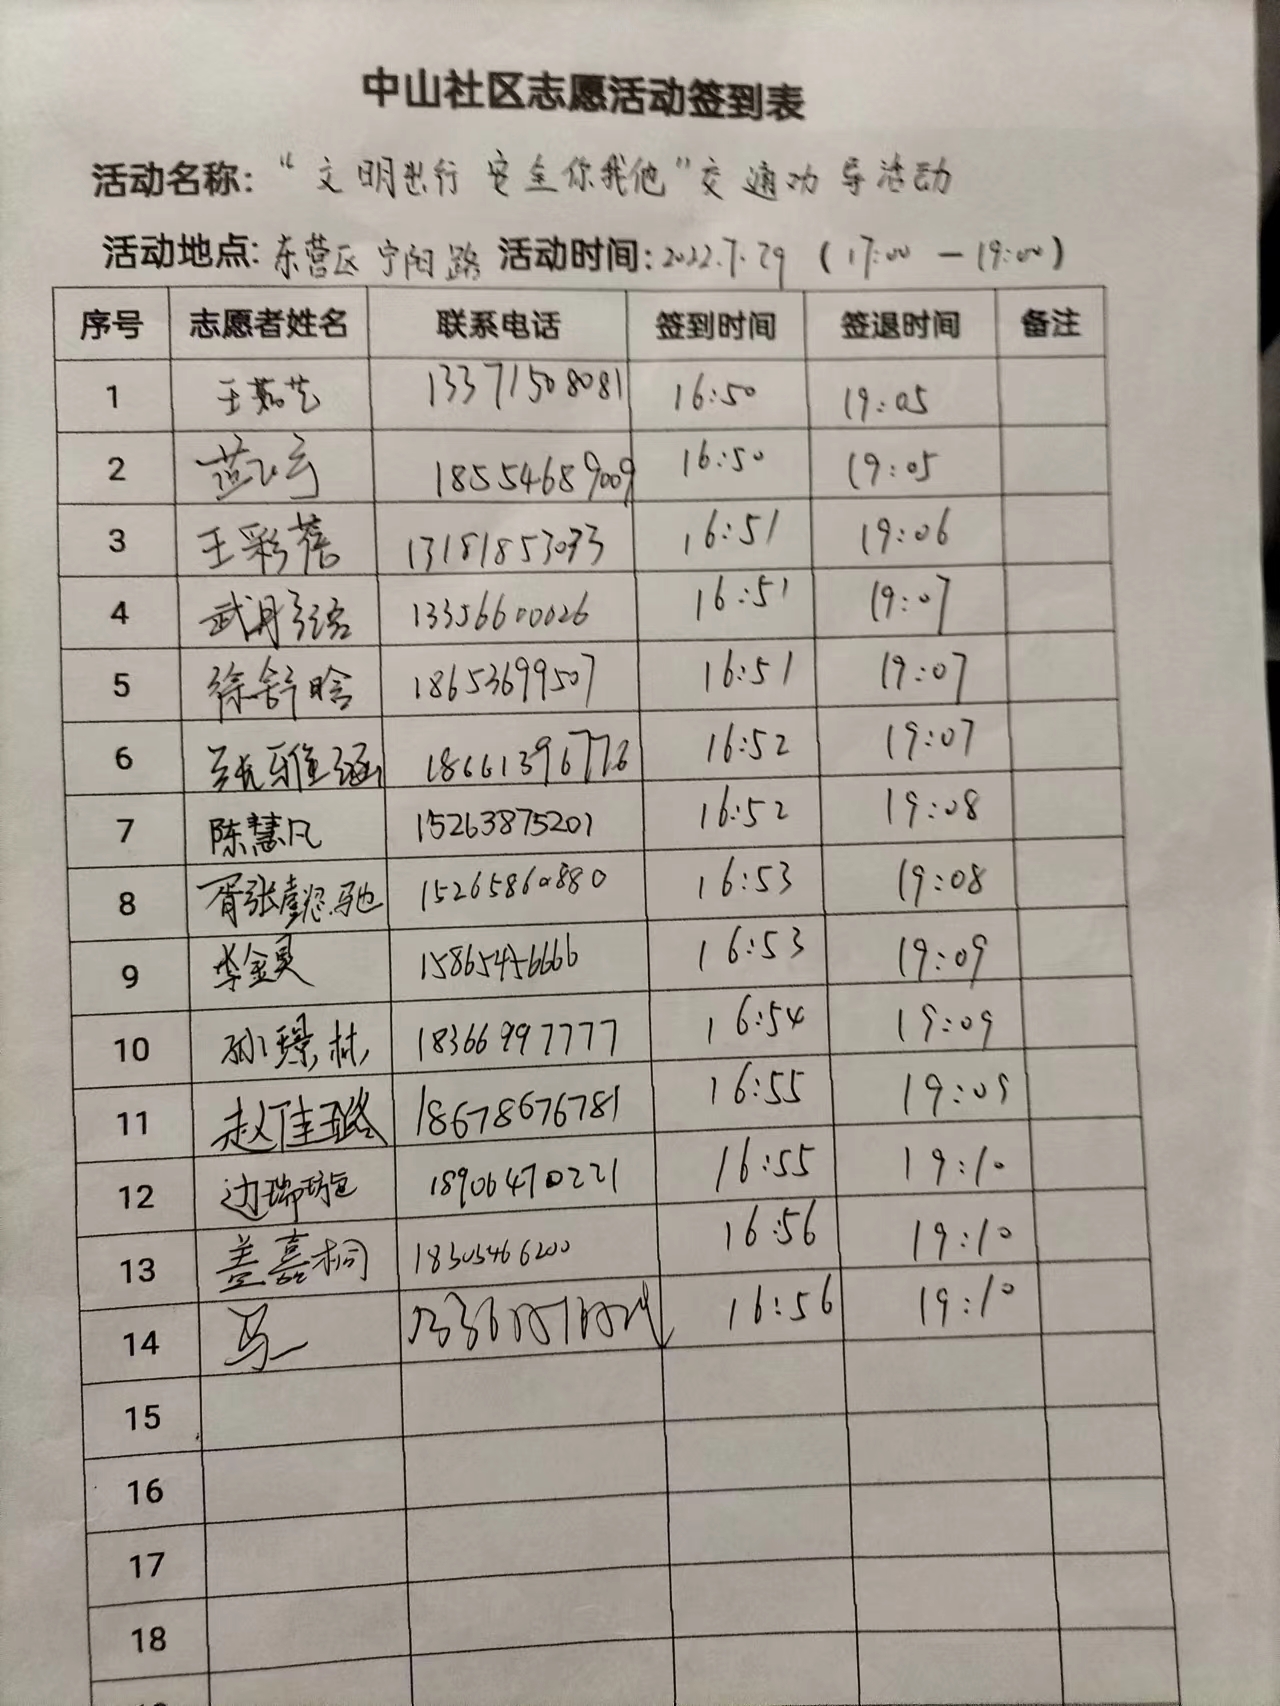 中山社区志愿活动签到表
活动名称: “文明出行 安全你我他”交通劝导活动
活动地点: 东营区宁阳路 活动时间: 2022.7.29 (17:00 - 19:00)
序号 志愿者姓名 联系电话 签到时间 签退时间 备注
1 王茹艺 13371508081 16:50 19:05
2 18554689009 16:50 19:05
3 王彩蓓 13181853073 16:51 19:06
4 武丹 13356600026 16:51 19:07
5 徐舒晗 18653699507 16:51 19:07
6 雅涵 18661396776 16:52 19:07
7 陈慧凡 15263875201 16:52 19:08
8 胥张懿驰 15265860880 16:53 19:08
9 李金 15865456666 16:53 19:09
10 孙璟林 18366997777 16:54 19:09
11 赵佳璐 18678676781 16:55 19:09
12 边瑞 18906470221 16:55 19:10
13 盖嘉桐 18305466200 16:56 19:10
14 马一 16:56 19:10
15
16
17
18